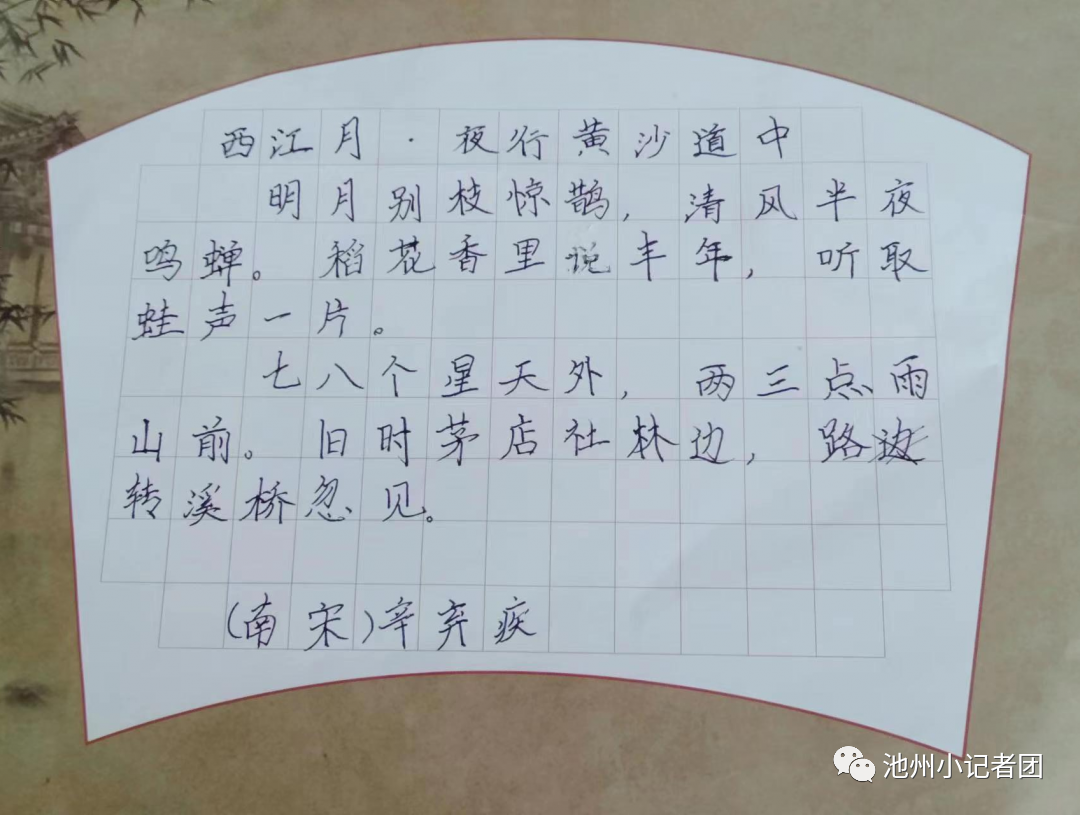 西江月·夜行黄沙道中
明月别枝惊鹊,清风半夜
鸣蝉。稻花香里说丰年,听取
蛙声一片。
七八个星天外,两三点雨
山前。旧时茅店社林边,路边
转溪桥忽见。
(南宋)辛弃疾
池州小记者团